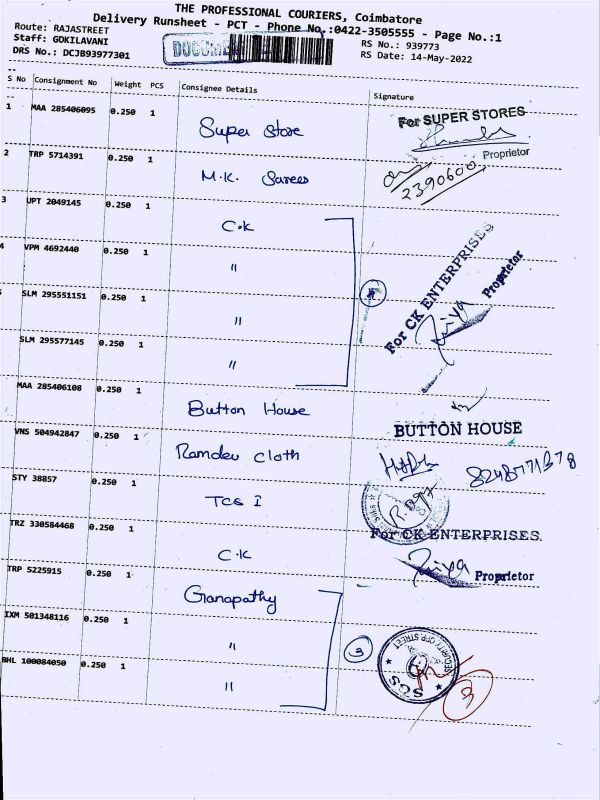 THE PROFESSIONAL COURIERS, Coimbatore
Delivery Runsheet - PCT - Phone No.:0422-3505555 - Page No.:1
Route: RAJASTREET
Staff: GOKILAVANI
DRS No.: DCJB93977301
RS No.: 939773
RS Date: 14-May-2022
S No Consignment No Weight PCS Consignee Details Signature
1 MAA 285406095 0.250 1 Super Store
For SUPER STORES
Proprietor
2 TRP 5714391 0.250 1 M.K. Sarees
2390600
3 UPT 2049145 0.250 1 C.K
4 VPM 4692440 0.250 1 "
For CK ENTERPRISES
Priya
Proprietor
SLM 295551151 0.250 1 "
SLM 295577145 0.250 1 "
MAA 285406108 0.250 1 Button House
BUTTON HOUSE
VNS 504942847 0.250 1 Ramdev Cloth
STY 38857 0.250 1 TCS I
TRZ 330584468 0.250 1 C.K
For CK ENTERPRISES.
Priya
Proprietor
TRP 5225915 0.250 1 Ganapathy
IXM 501348116 0.250 1 "
3
BHL 100084050 0.250 1 "
SCS
3